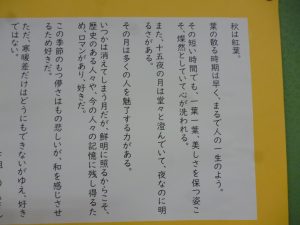 秋は紅葉。
葉の散る時期は早く、まるで人の一生のよう。
その短い時間でも、一葉一葉、美しさを保つ姿こ
そ、燦然としていて心が洗われる。
また、十五夜の月は堂々と澄んでいて、夜なのに明
るさがある。
その月は多くの人を魅了する力がある。
いつかは消えてしまう月だが、鮮明に照るからこそ、
歴史のある人々や、今の人々の記憶に残し得るた
め、ロマンがあり、好きだ。
この季節のもつ儚さはもの悲しいが、和を感じさせ
るため好きだ。
ただ、寒暖差だけはどうにもできないがゆえ、好き
ではない。